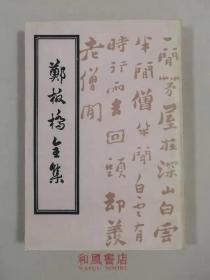 鄭板橋全集
一间茅屋在深山白雲
半间僧半间白雲有
時行雨去回頭却羨
老僧间
和風書店
WAFUU BOOKS